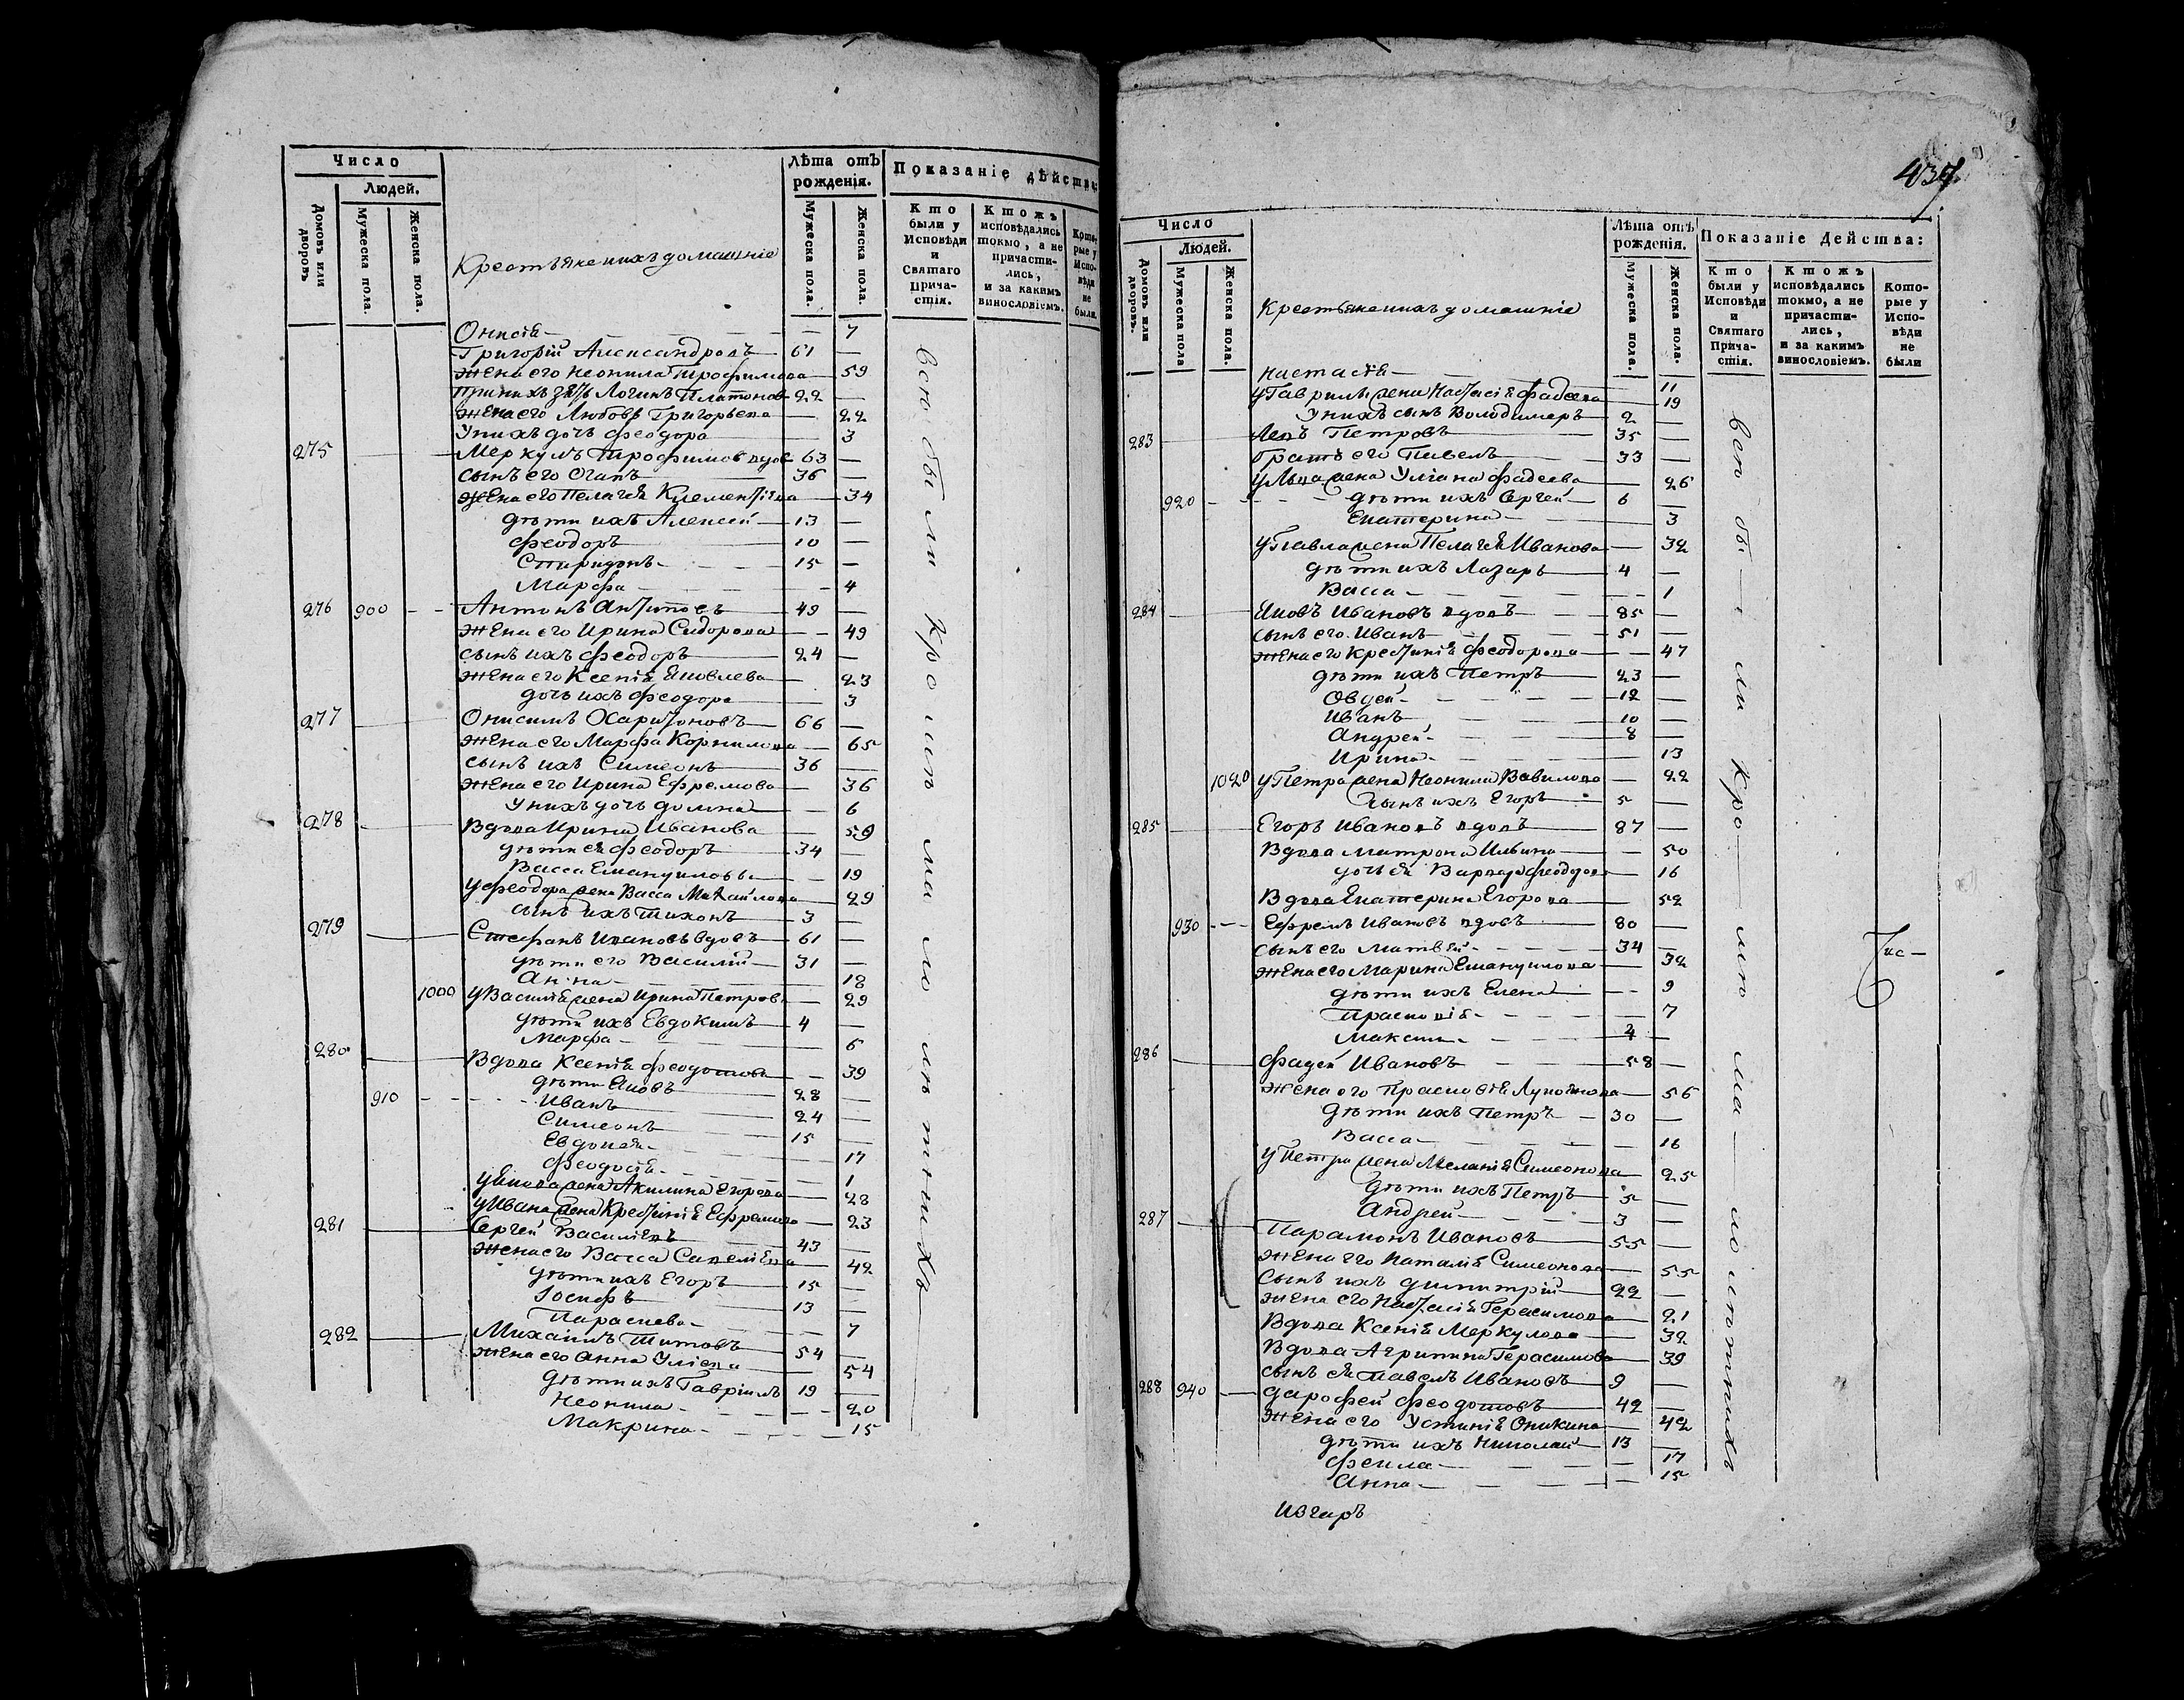 Число
Людей.
Домовъ или дворовъ
Мужеска пола.
Женска пола.
Крестьяне и ихъ домашніе
Лѣта отъ рожденія.
Мужеска пола.
Женска пола.
Показаніе дѣйства:
Кто были у Исповѣди и Святаго Причастія.
Ктожъ исповѣдались токмо, а не причастились, и за какимъ винословіемъ.
Которые у Исповѣди не были.
всю бы ли кро мѣ ма ло лѣ тнихъ
Онисія — 7
Григорій Александровъ 61 —
жена его Неонила Трофимова — 59
при нихъ зять Логинъ Платоновъ 22 —
жена его Любовь Григорьева — 22
У нихъ дочь Феодора — 3
275 Меркулъ Трофимов вдов 63 —
сынъ его Остапъ 36 —
жена его Пелагея Климентіева — 34
дѣти ихъ Алексѣй 13 —
Феодоръ 10 —
Спиридонъ 15 —
Марфа — 4
276 900 Антонъ Антиповъ 49 —
жена его Ирина Сидорова — 49
сынъ ихъ Феодоръ 24 —
жена его Ксенія Яковлева — 23
дочь ихъ Феодора — 3
277 Онисимъ Харитоновъ 66 —
жена его Марфа Корнилова — 65
сынъ ихъ Симеонъ 36 —
жена его Ирина Ефремова — 36
У нихъ дочь Домна — 6
278 Вдова Ирина Иванова — 59
дѣти ея Феодоръ 34 —
Васса Емануилова — 19
у Феодора жена Васса Михайлова — 29
сынъ ихъ Тихонъ 3 —
279 Стефанъ Ивановъ вдовъ 61 —
дѣти его Василій 31 —
Анна — 18
1000 у Василія жена Ирина Петрова — 29
дѣти ихъ Евдокимъ 4 —
Марфа — 6
280 Вдова Ксенія Феодотова — 39
дѣти Яковъ 28 —
910 Иванъ 24 —
Симеонъ 15 —
Евдокея — 17
Феодосія — 1
у Якова жена Акилина Егорова — 28
у Ивана жена Крестинія Ефремова — 23
281 Сергей Василіевъ 43 —
жена его Васса Савеліева — 42
дѣти ихъ Егоръ 15 —
Іосифъ 13 —
Параскева — 7
282 Михаилъ Титовъ 54 —
жена его Анна Уліева — 54
дѣти ихъ Гавріилъ 19 —
Неонила — 20
Макрина — 15
437
Число
Людей.
Домовъ или дворовъ.
Мужеска пола
Женска пола.
Крестьяне и ихъ домашніе
Лѣта отъ рожденія.
Мужеска пола.
Женска пола.
Показаніе Действа:
Кто были у Исповѣди и Святаго Причастія.
Ктожъ исповѣдались токмо, а не причастились, и за какимъ винословіемъ.
Которые у Исповѣди не были
всю — бы — ли кро — мѣ ма — ло лѣтнихъ
Настасія — 11
у Гаврилы жена Настасія Фадеева — 19
У нихъ сынъ Володимеръ 2 —
283 Левъ Петровъ 35 —
братъ его Павелъ 33 —
у Льва жена Уліана Фадеева — 26
920 дѣти ихъ Сергей 6 —
Екатерина — 3
у Павла жена Пелагея Иванова — 32
дѣти ихъ Лазарь 4 —
Васса — 1
284 Яковъ Ивановъ вдовъ 85 —
сынъ его Иванъ 51 —
жена его Крестинія Феодорова — 47
дѣти ихъ Петръ 23 —
Овдей 12 —
Иванъ 10 —
Андрей 8 —
Ирина — 13
1020 у Петра жена Неонила Вавилова — 22
сынъ ихъ Егоръ 5 —
285 Егоръ Ивановъ вдовъ 87 —
Вдова Матрона Ильина — 50
дочь ея Варвара Феодоров — 16
Вдова Екатерина Егорова — 52
930 Ефремъ Ивановъ вдовъ 80 —
сынъ его Матвей 34 —
жена его Марина Емануилова — 32
дѣти ихъ Елена — 9
Прасковія — 7
Максим 4 —
286 Фадей Ивановъ 58 —
жена его Прасковія Лукоянова — 56
дѣти ихъ Петръ 30 —
Васса — 16
у Петра жена Меланія Симеонова — 25
дѣти ихъ Петръ 5 —
Андрей 3 —
287 Парамонъ Ивановъ 55 —
жена его Наталія Симеонова — 55
сынъ ихъ Димитрій 22 —
жена его Настасія Герасимова — 21
Вдова Ксенія Меркулова — 32
Вдова Агрипина Герасимова — 39
сынъ ея Павелъ Ивановъ 9 —
288 940 Дарофей Феодотовъ 42 —
жена его Устинія Оникина — 42
дѣти ихъ Николай 13 —
Фекла — 17
Анна — 15